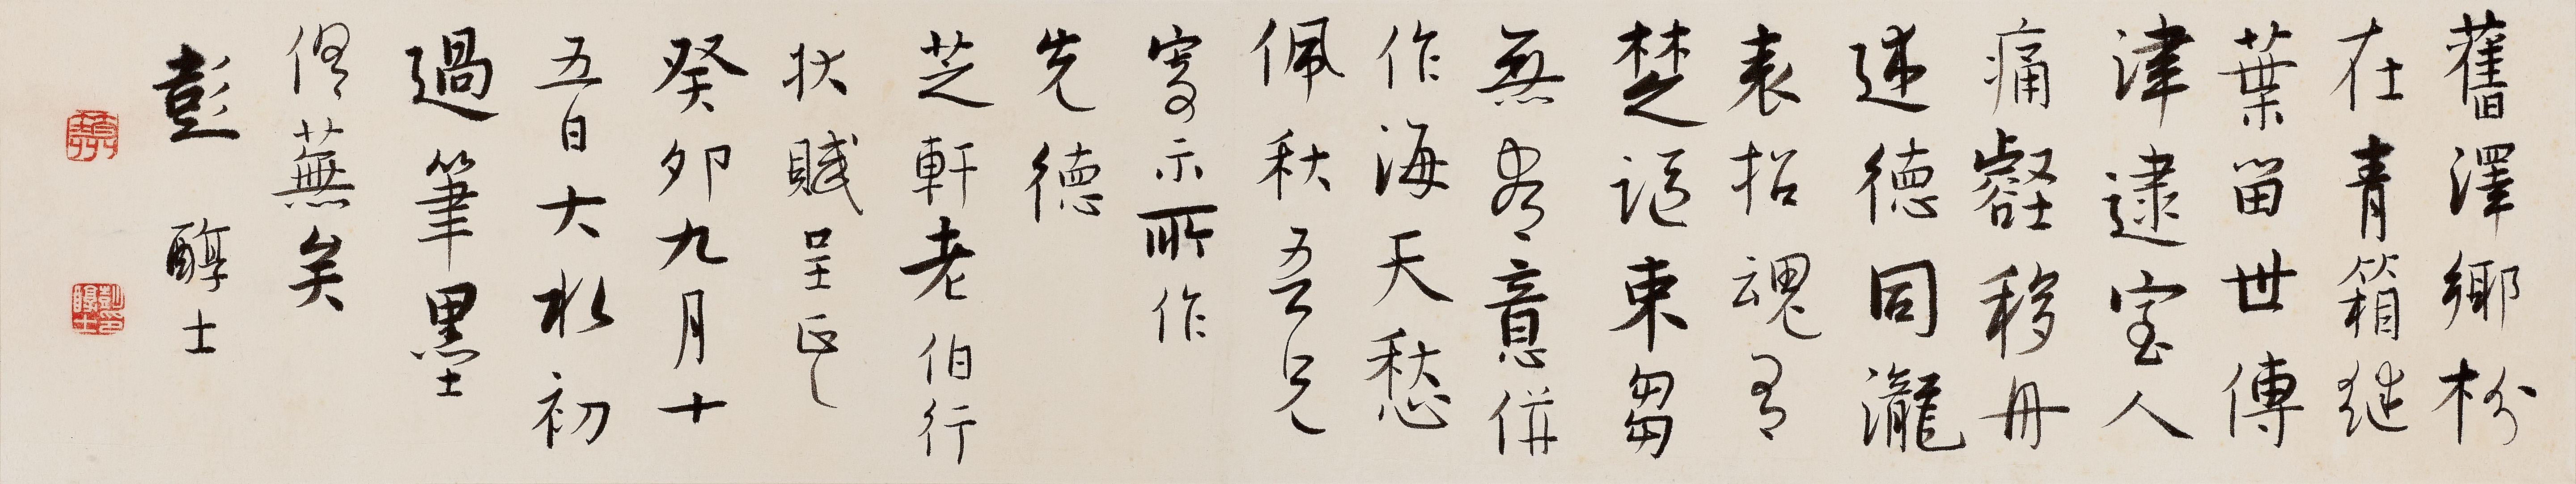 舊澤鄉枌
在青箱継
葉留世傳
津逮室人
痛壑移舟
述德同瀧
表招魂有
楚謳東芻
無厺意併
作海天愁
佩秋吾兄
寄示所作
先德
芝軒老伯行
狀賦呈正
癸卯九月十
五日大水初
過筆墨
俱蕪矣
彭醇士
彭印
醇士